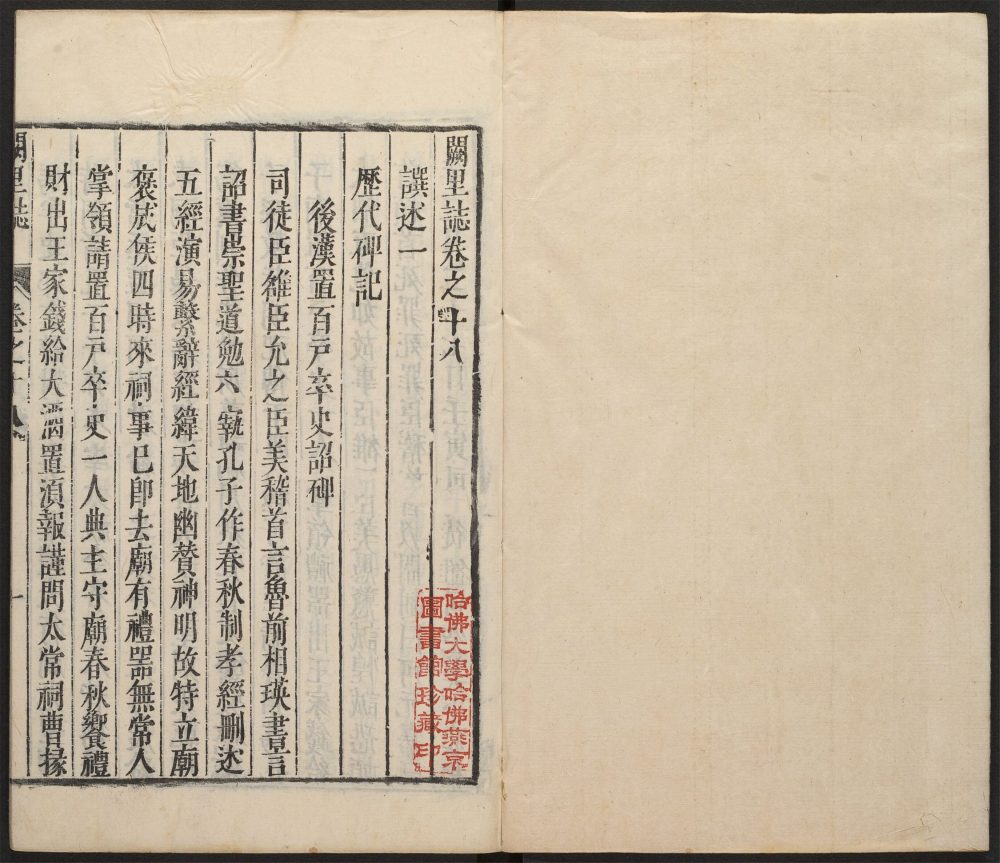 闕里誌卷之十八
譔述一
歷代碑記
後漢置百戶卒史詔碑
司徒臣雄臣允之臣美稽首言魯前相瑛書言
詔書崇聖道勉六蓺孔子作春秋制孝經刪述
五經演易繫辭經緯天地幽賛神明故特立廟
褒成侯四時來祠事已卽去廟有禮器無常人
掌領請置百戶卒史一人典主守廟春秋饗禮
財出王家錢給大酒置須報謹問太常祠曹掾
闕里誌
卷之十八
一
哈佛大學哈佛燕京
圖書館珍藏印